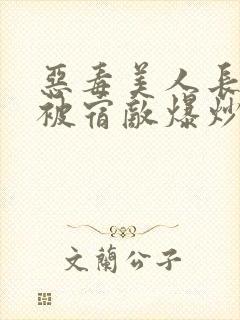 惡毒美人長
被宿敵爆炒
文蘭公子